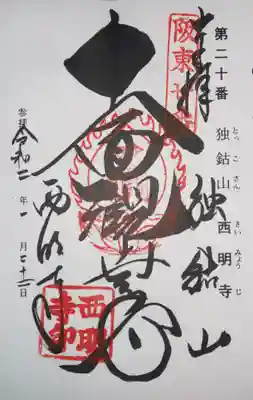 第二十番 独鈷山西明寺
とっこさん さいみょうじ
奉拝 独鈷山
阪東廿番
西明寺
参拝 令和二年一月二十二日
西明寺印